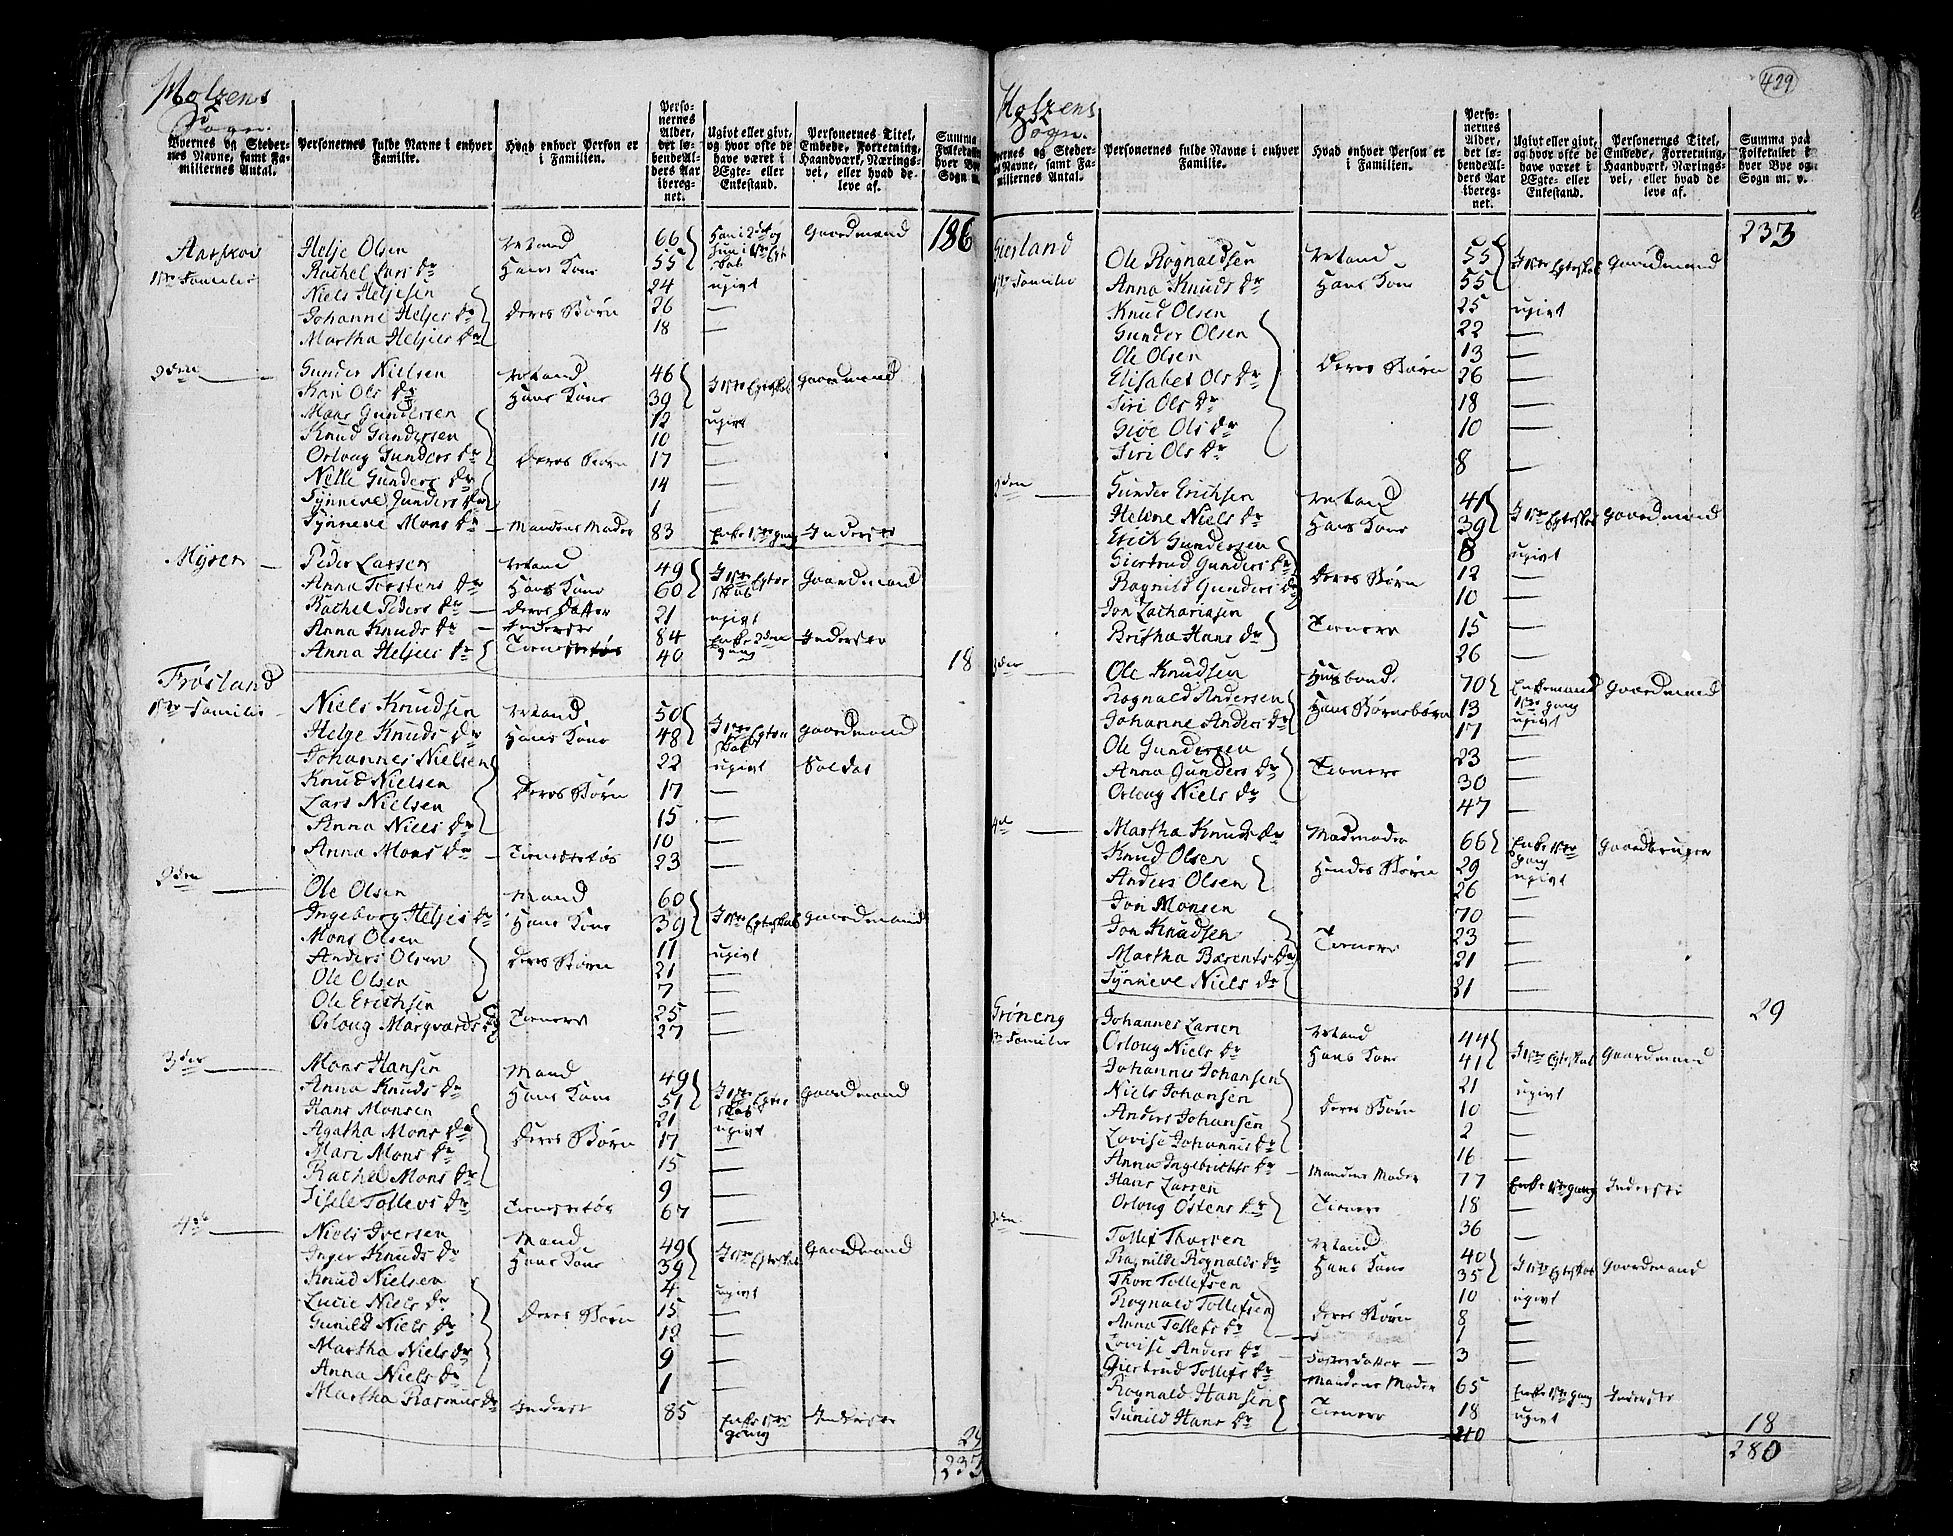 Holzens
Sogn.
Byernes og Steder-
nes Navne, samt Fa-
miliernes Antal.
Personernes fulde Navne i enhver
Familie.
Hvad enhver Person er
i Familien.
Perso-
nernes
Alder,
det lø-
bende Al-
ders Aar
ibereg-
net.
Ugivt eller givt,
og hvor ofte de
have været i
Ægte- eller
Enkestand.
Personernes Titel,
Embede, Forretning,
Haandværk, Nærings-
vei, eller hvad de
leve af.
Summa
Folketallet
hver Bye
Sogn m.
186
Aarskov Helje Olsen Mand 66 Han i 2det og Gaardmand
1ste Familie Rachel Lars Dr Hans Kone 55
Niels Heljesen 24 ugivt
Johanne Heljes Dr Deres Børn 26 —
Martha Heljes Dr 18 —
2den Gunder Nielsen Mand 46 I 1ste Egteskab Gaardmand
Kari Ols Dr Hans Kone 39
Mons Gundersen 12 ugivt
Knud Gundersen 10 —
Orloug Gunders Dr Deres Børn 17 —
Nelle Gunders Dr 14 —
Synneve Gunders Dr 1 —
Synneve Mons Dr — Mandens Moder 83 Enke 1ste gang Inderste
Myren — Peder Larsen Mand 49 I 1ste Egte- Gaardmand
Anna Torstens Dr Hans Kone 60 skab
Rachel Peders Dr — Deres Datter 21 ugivt
Anna Knuds Dr — Inderste 84 Enke 2den gang Inderste
Anna Heljes Dr Tieneste 40
18
Frøsland
1ste Familie Niels Knudsen Mand 50 I 1ste Egte- Gaardmand
Helge Knuds Dr Hans Kone 48 skab
Johannes Nielsen 22 ugivt Soldat
Knud Nielsen Deres Børn 17 —
Lars Nielsen 15 —
Anna Niels Dr 10 —
Anna Mons Dr — Tienestetøs 23 —
2den Ole Olsen Mand 60
Ingeborg Heljes Dr Hans Kone 39 I 1ste Egteskab Gaardmand
Mons Olsen 11 ugivt
Anders Olsen Deres Børn 21 —
Ole Olsen 7 —
Ole Erichsen 25 —
Orloug Marqvards Dr Tienere 27 —
3die Mons Hansen Mand 49
Anna Knuds Dr Hans Kone 51 I 1ste Egteskab Gaardmand
Hans Monsen 21 ugivt
Agatha Mons Dr Deres Børn 17 —
Mari Mons Dr 15 —
Rachel Mons Dr 9 —
Sissle Tollevs Dr Tienestetøs 67 —
4de Niels Iversen Mand 49 I 1ste Egteskab Gaardmand
Inger Knuds Dr Hans Kone 39
Knud Nielsen 4 ugivt
Lucie Niels Dr Deres Børn 15 —
Gunild Niels Dr 12 —
Martha Niels Dr 9 —
Anna Niels Dr 1 —
Martha Rasmus Dr Inderst 85 Enke 1ste gang Inderste
29
233
429
Holzens
Sogn.
Byernes og Steder-
nes Navne, samt Fa-
miliernes Antal.
Personernes fulde Navne i enhver
Familie.
Hvad enhver Person er
i Familien.
Perso-
nernes
Alder,
det lø-
bende Al-
ders Aar
ibereg-
net.
Ugivt eller givt,
og hvor ofte de
have været i
Ægte- eller
Enkestand.
Personernes Titel,
Embede, Forretning,
Haandværk, Nærings-
vei, eller hvad de
leve af.
Summa paa
Folketallet i
hver Bye og
Sogn m. v.
233
Giersland Ole Rognaldsen Mand 55 I 1ste Egteskab Gaardmand
1ste Familie Anna Knuds Dr Hans Kone 55
Knud Olsen 25 ugivt
Gunder Olsen 22 —
Ole Olsen 13 —
Elisabet Ols Dr Deres Børn 26 —
Siri Ols Dr 18 —
Giøe Ols Dr 10 —
Siri Ols Dr 8 —
2den Gunder Erichsen Mand 41 I 1ste Egteskab Gaardmand
Helene Niels Dr Hans Kone 39
Erich Gundersen 8 ugivt
Giertrud Gunders Dr Deres Børn 12 —
Ragnild Gunders Dr 10 —
Jon Zachariasen Tienere 15 —
Britha Hans Dr 26 —
3die Ole Knudsen Husbond 70 Enkemand Gaardmand
Rognald Andersen Hans Børnebørn 13 1ste gang
Johanne Anders Dr 17 ugivt —
Ole Gundersen 23 —
Anna Gunders Dr Tienere 30 —
Orloug Niels Dr 47 —
4de Martha Knuds Dr Madmoder 66 Enke 1ste gang Gaardbruger
Knud Olsen Hendes Børn 29 ugivt
Anders Olsen 26 —
Jon Monsen 70 —
Jon Knudsen Tienere 23 —
Martha Bærents Dr 21 —
Synneve Niels Dr 31 —
29
Grøneng Johannes Larsen Mand 44 I 1ste Egteskab Gaardmand
1ste Familie Orloug Niels Dr Hans Kone 41
Johannes Johansen 21 ugivt
Niels Johansen Deres Børn 10 —
Anders Johansen 2 —
Lovise Johannis Dr 16 —
Anna Ingebrichts Dr — Mandens Moder 77 Enke 1ste gang Inderste
Hans Larsen 18 —
Orloug Østens Dr Tienere 36 —
2den Tollef Thorsen Mand 40 I 1ste Egteskab Gaardmand
Ragnilde Rognalds Dr Hans Kone 35
Thore Tollefsen 10 ugivt
Rognald Tollefsen Deres Børn 8 —
Anna Tollefs Dr 1 —
Lovise Anders Dr — Søsterdatter — 3 —
Giertrud Tollefs Dr Mandens Moder 65 Enke 1ste gang Inderste
Rognald Hansen Tienere 18 ugivt
Gunild Hans Dr 40 —
18
280